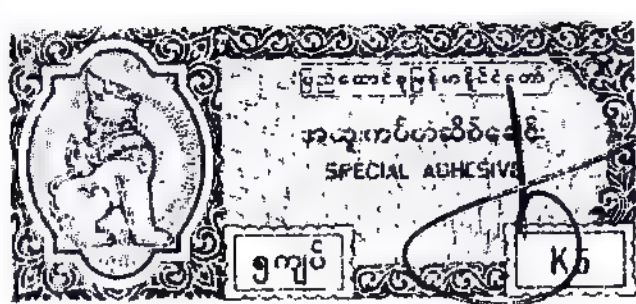 ပြည်ထောင်စုမြန်မာနိုင်ငံတော်
အထူးကပ်တံဆိပ်ခေါင်း
SPECIAL ADHESIVE
၅ကျပ် K5